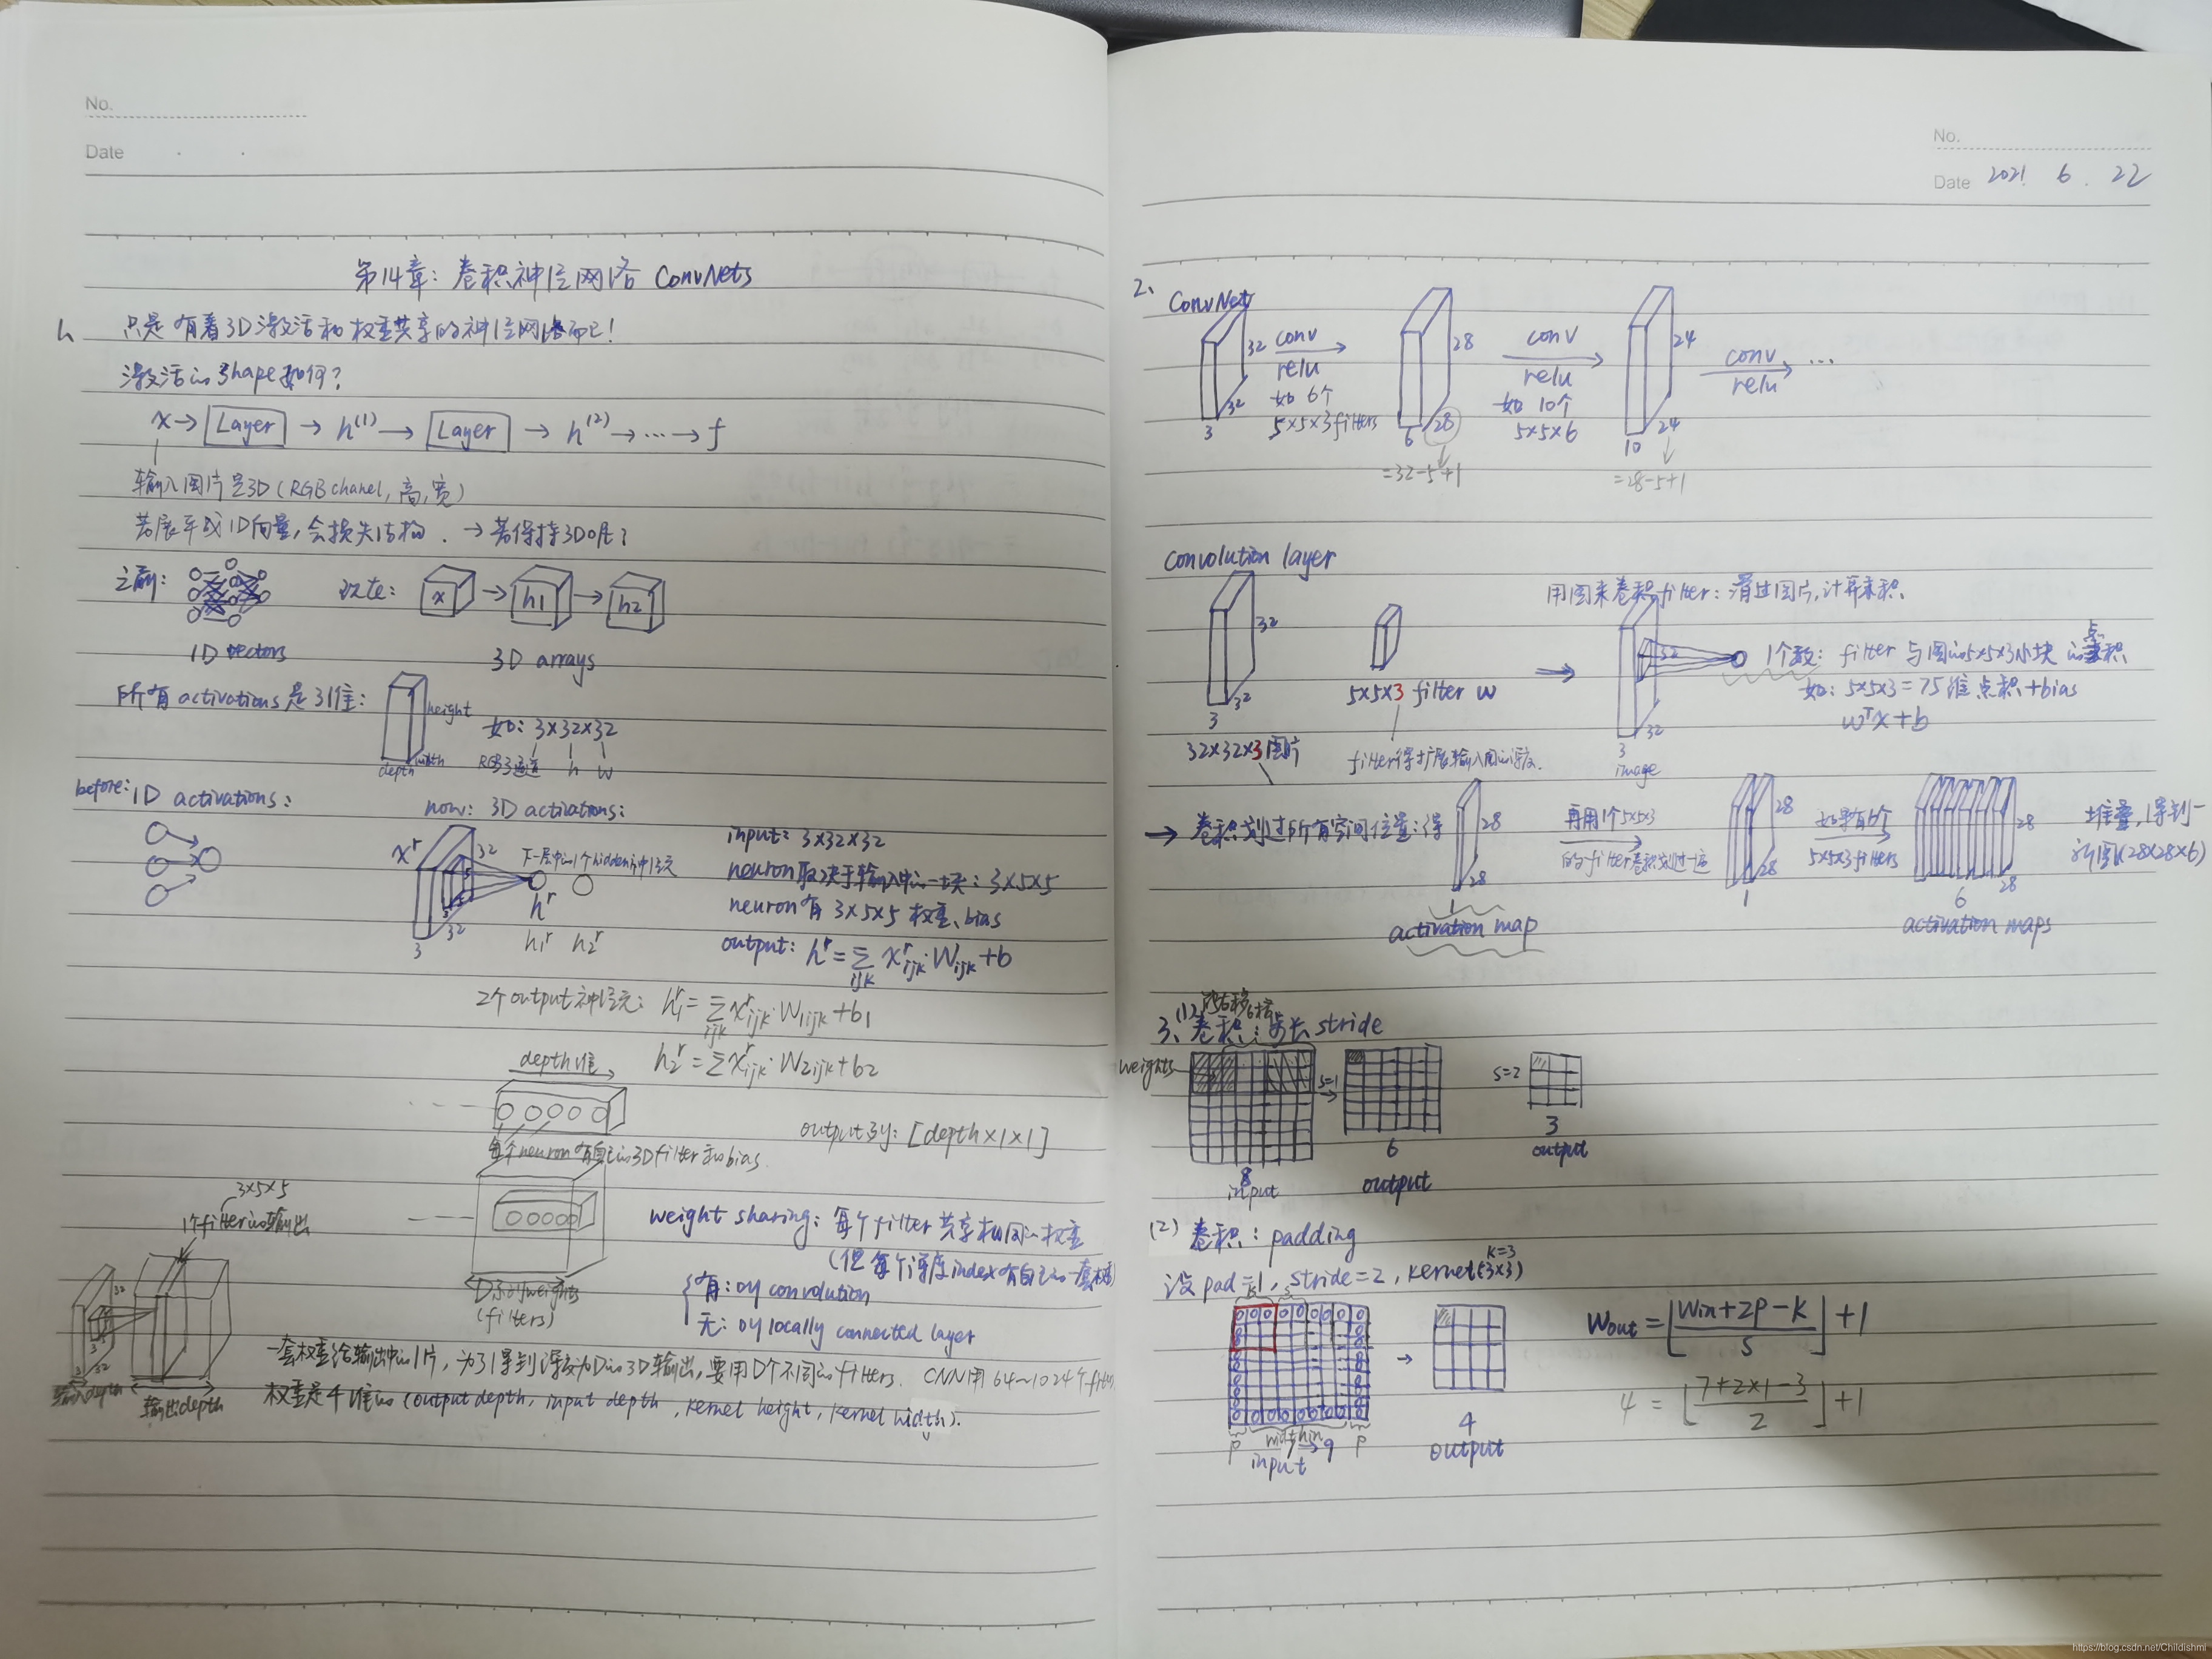 No.
Date
第14章：卷积神经网络 ConvNets
1、只是有着3D激活和权重共享的神经网络而已！
激活的shape如何？
x → Layer → h(1) → Layer → h(2) → ··· → f
输入图片是3D (RGB chanel, 高, 宽)
若展平成1D向量，会损失结构. → 若保持3D呢？
之前：
1D vectors
改在：
x → h1 → h2
3D arrays
所有 activations 是3维：
height
width
depth
如：3×32×32
RGB3通道 h w
before: 1D activations:
now: 3D activations:
xʳ
32
32
3
5
5
下一层中的1个hidden神经元
hʳ
h₁ʳ h₂ʳ
input: 3×32×32
neuron取决于输入中的一块：3×5×5
neuron有 3×5×5 权重、bias
output: hʳ=∑ijk xʳijk·Wijk+b
2个output神经元：h₁ʳ=∑ijk xʳijk·W1ijk+b1
h₂ʳ=∑xʳijk·W2ijk+b2
depth维
每个neuron有自己的3D filter和bias.
output为: [depth×1×1]
weight sharing：每个filter共享相同的权重
(但每个深度index有自己的一套权重)
有：叫convolution
无：叫locally connected layer
D系列weights
(filters)
3×5×5
1个filter的输出
32
32
3
输入depth
输出depth
一套权重给输出中的1片，为了得到深度为D的3D输出，要用D个不同的filters. CNN用64~1024个filters
权重是4维的 (output depth, input depth, kernel height, kernel width).
No.
Date 2021 6 . 22
2、ConvNets
32
32
3
conv
relu
如 6个
5×5×3 filters
28
6
28
=32-5+1
conv
relu
如 10个
5×5×6
24
10
24
=28-5+1
conv
relu
...
convolution layer
32
32
3
32×32×3图片
5×5×3 filter w
filter得扩展输入图的深度.
用图来卷积filter：滑过图片，计算乘积.
32
32
3
image
1个数：filter 与图的5×5×3小块的点积
如：5×5×3=75维点积+bias
wᵀx+b
→ 卷积划过所有空间位置：得
28
28
1
activation map
再用1个5×5×3
的filter卷积划过一遍
28
28
1
如果有6个
5×5×3 filters
28
28
6
activation maps
堆叠，得到一
新图(28×28×6)
3、(1) 卷积：步长 stride
weights
8
input
s=1
6
output
s=2
3
output
(2) 卷积：padding
设 pad=1, stride=2, kernel(3×3)
k=3
p
width in
7→9
p
input
4
output
Wout=⌊(Win+2P-K)/S⌋+1
4 = ⌊(7+2×1-3)/2⌋+1
https://blog.csdn.net/Childishmi